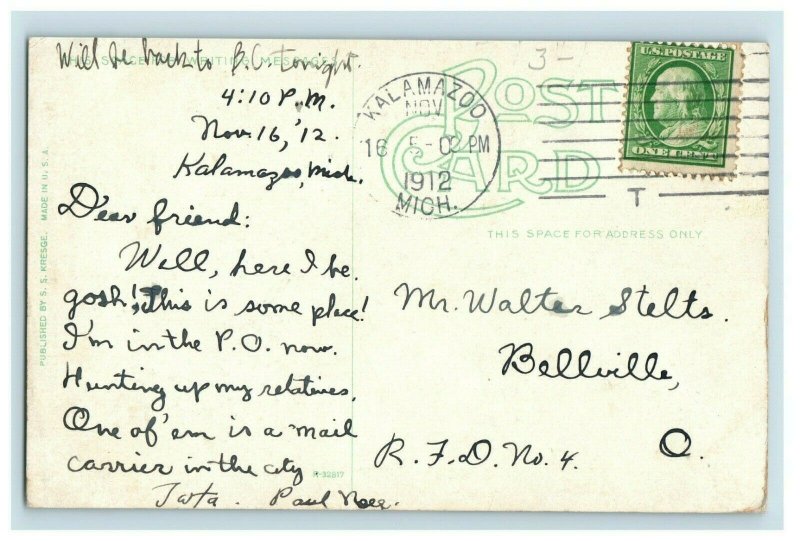 Will be back to B.C. tonight.
THIS SPACE FOR WRITING MESSAGES
4:10 P.M.
Nov. 16, '12.
Kalamazoo, Mich.
Dear friend:
Well, here I be.
gosh! This is some place!
I'm in the P.O. now.
Hunting up my relatives.
One of 'em is a mail
carrier in the city
Ta ta. Paul
R-32817
PUBLISHED BY S. S. KRESGE. MADE IN U. S. A.
3-
POST
CARD
KALAMAZOO
NOV
16 5-0 PM
1912
MICH.
T
U.S. POSTAGE
ONE CENT
THIS SPACE FOR ADDRESS ONLY
Mr. Walter Stelts.
Bellville,
R.F.D. No. 4. O.